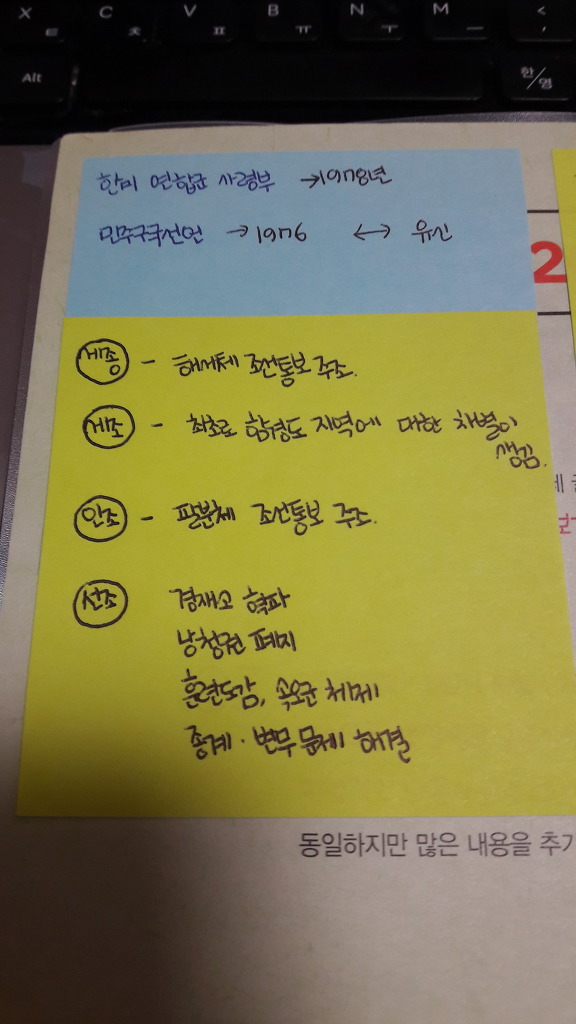 X C V B N M <
ㅌ ㅊ ㅍ ㅠ ㅜ ㅡ ,
Alt 한/영
한미 연합군 사령부 →1978년
민주구국선언 →1976 ↔ 유신
2
세종 - 해서체 조선통보 주조.
세조 - 최초로 함경도 지역에 대한 차별이
생김.
인조 - 팔분체 조선통보 주조.
선조 경재소 혁파
낭청권 폐지
훈련도감, 속오군 체제
종계·변무 문제 해결
동일하지만 많은 내용을 추가